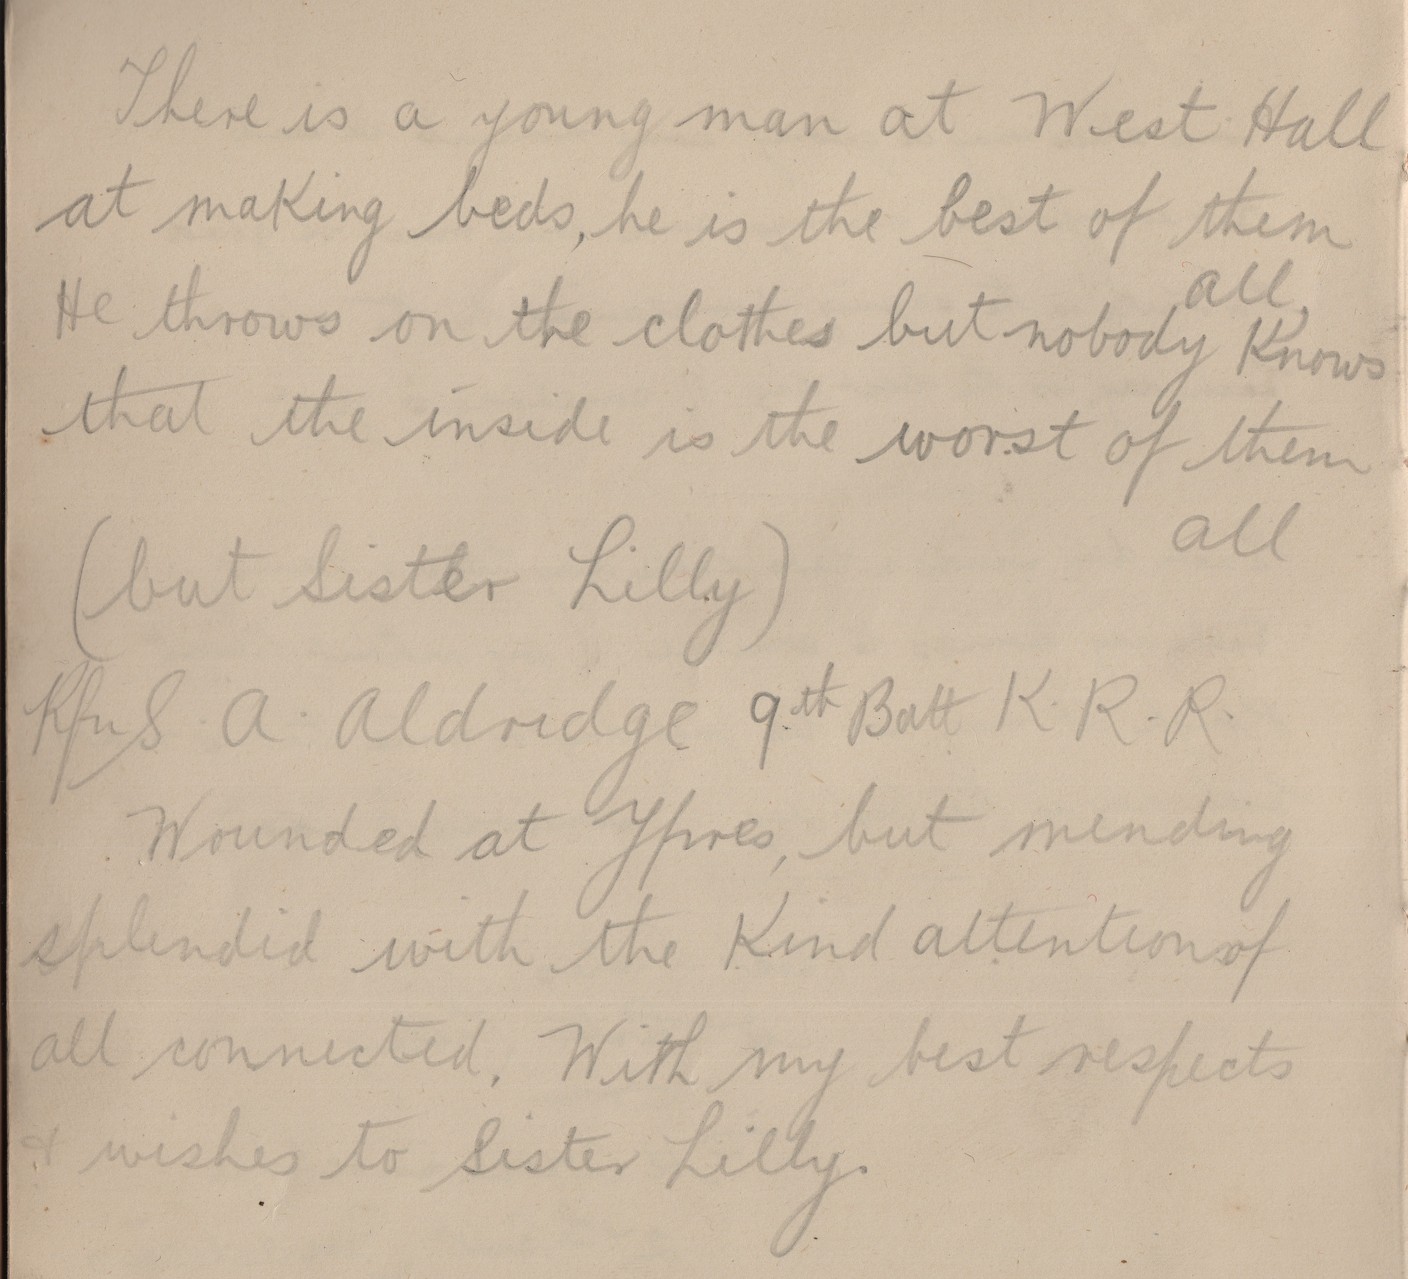 There is a young man at West Hall
at making beds, he is the best of them
all,
He throws on the clothes but nobody Knows
that the inside is the worst of them
all
(but Sister Lilly)
A. Aldridge 9th Batt K. R. R.
Wounded at Ypres, but mending
splendid with the Kind attention of
all connected. With my best respects
& wishes to Sister Lilly.